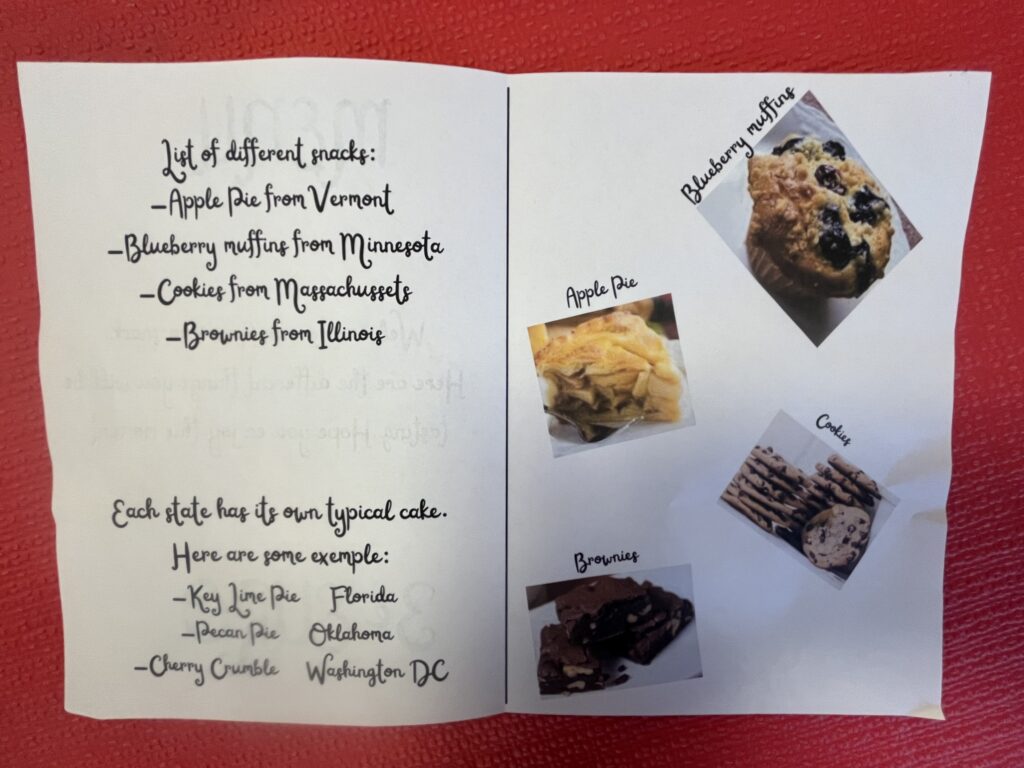 List of different snacks:
-Apple Pie from Vermont
-Blueberry muffins from Minnesota
-Cookies from Massachussets
-Brownies from Illinois
Each state has its own typical cake.
Here are some exemple:
-Key Lime Pie Florida
-Pecan Pie Oklahoma
-Cherry Crumble Washington DC
Blueberry muffins
Apple Pie
Cookies
Brownies